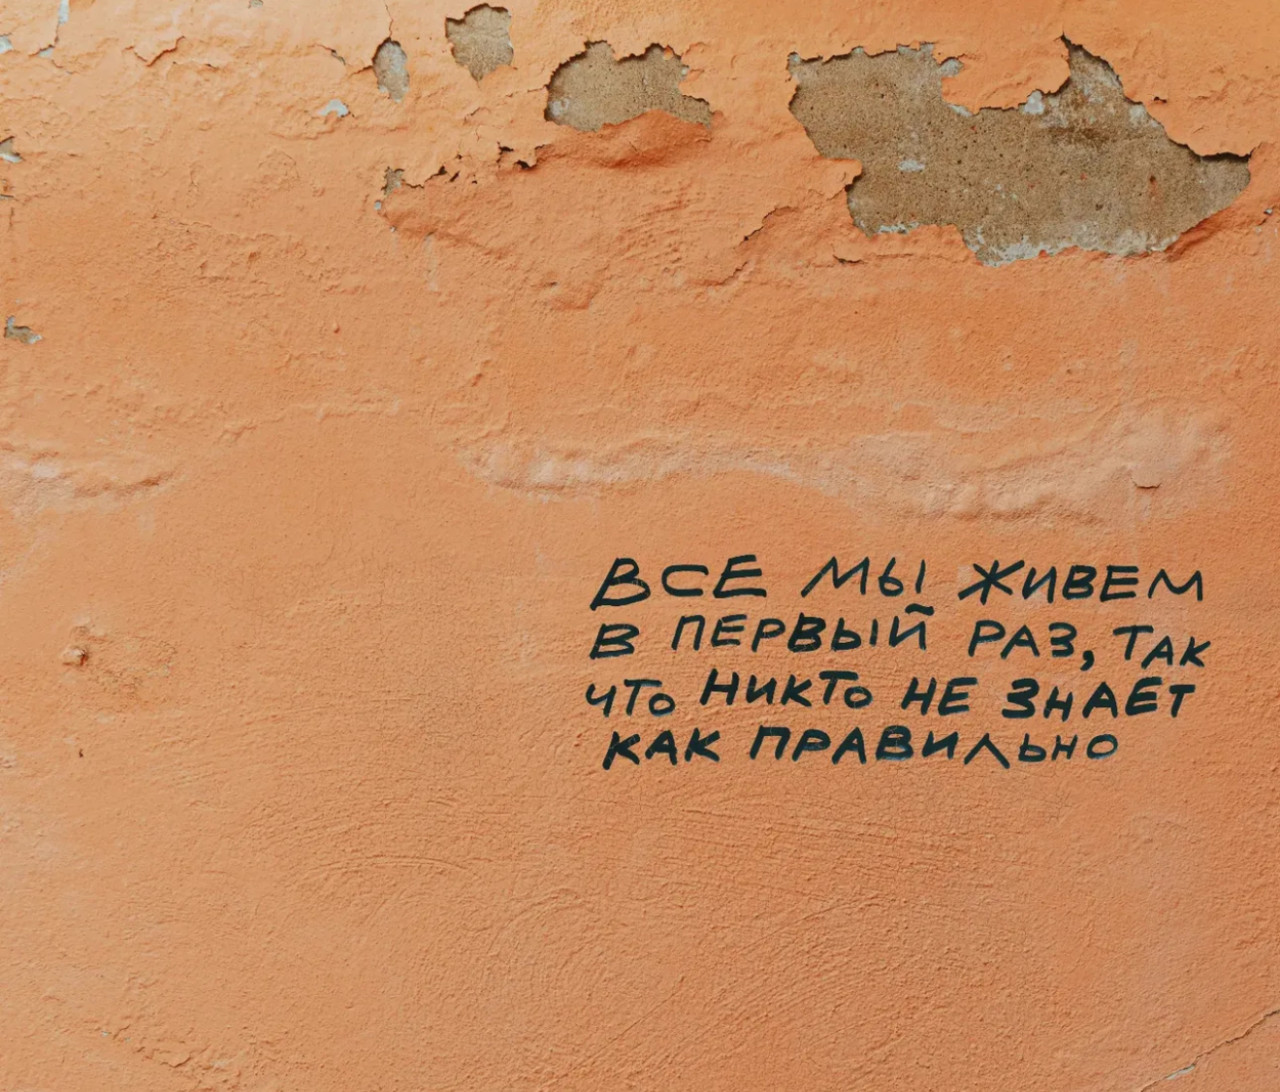 ВСЕ МЫ ЖИВЕМ
В ПЕРВЫЙ РАЗ, ТАК
ЧТО НИКТО НЕ ЗНАЕТ
КАК ПРАВИЛЬНО